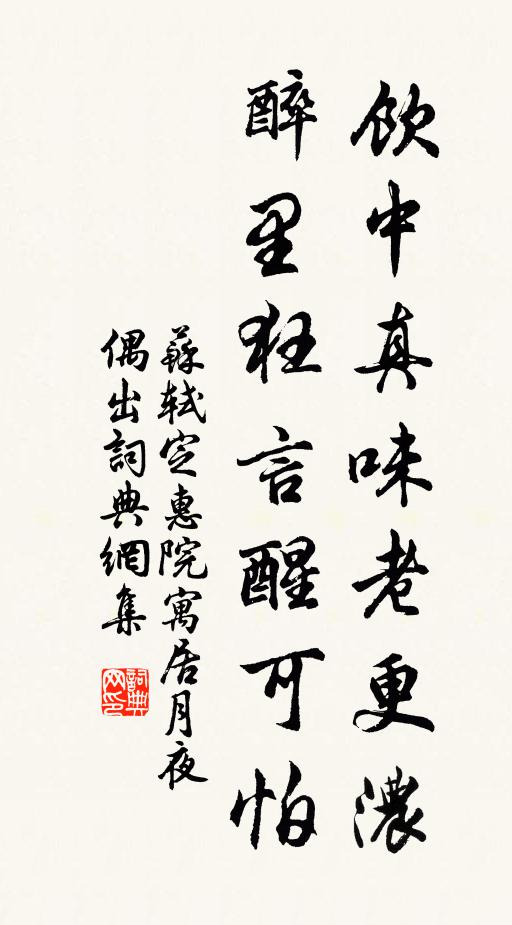 飲中真味老更濃
醉里狂言醒可怕
蘇軾定惠院寓居月夜
偶出詞典網集
詞典
网印